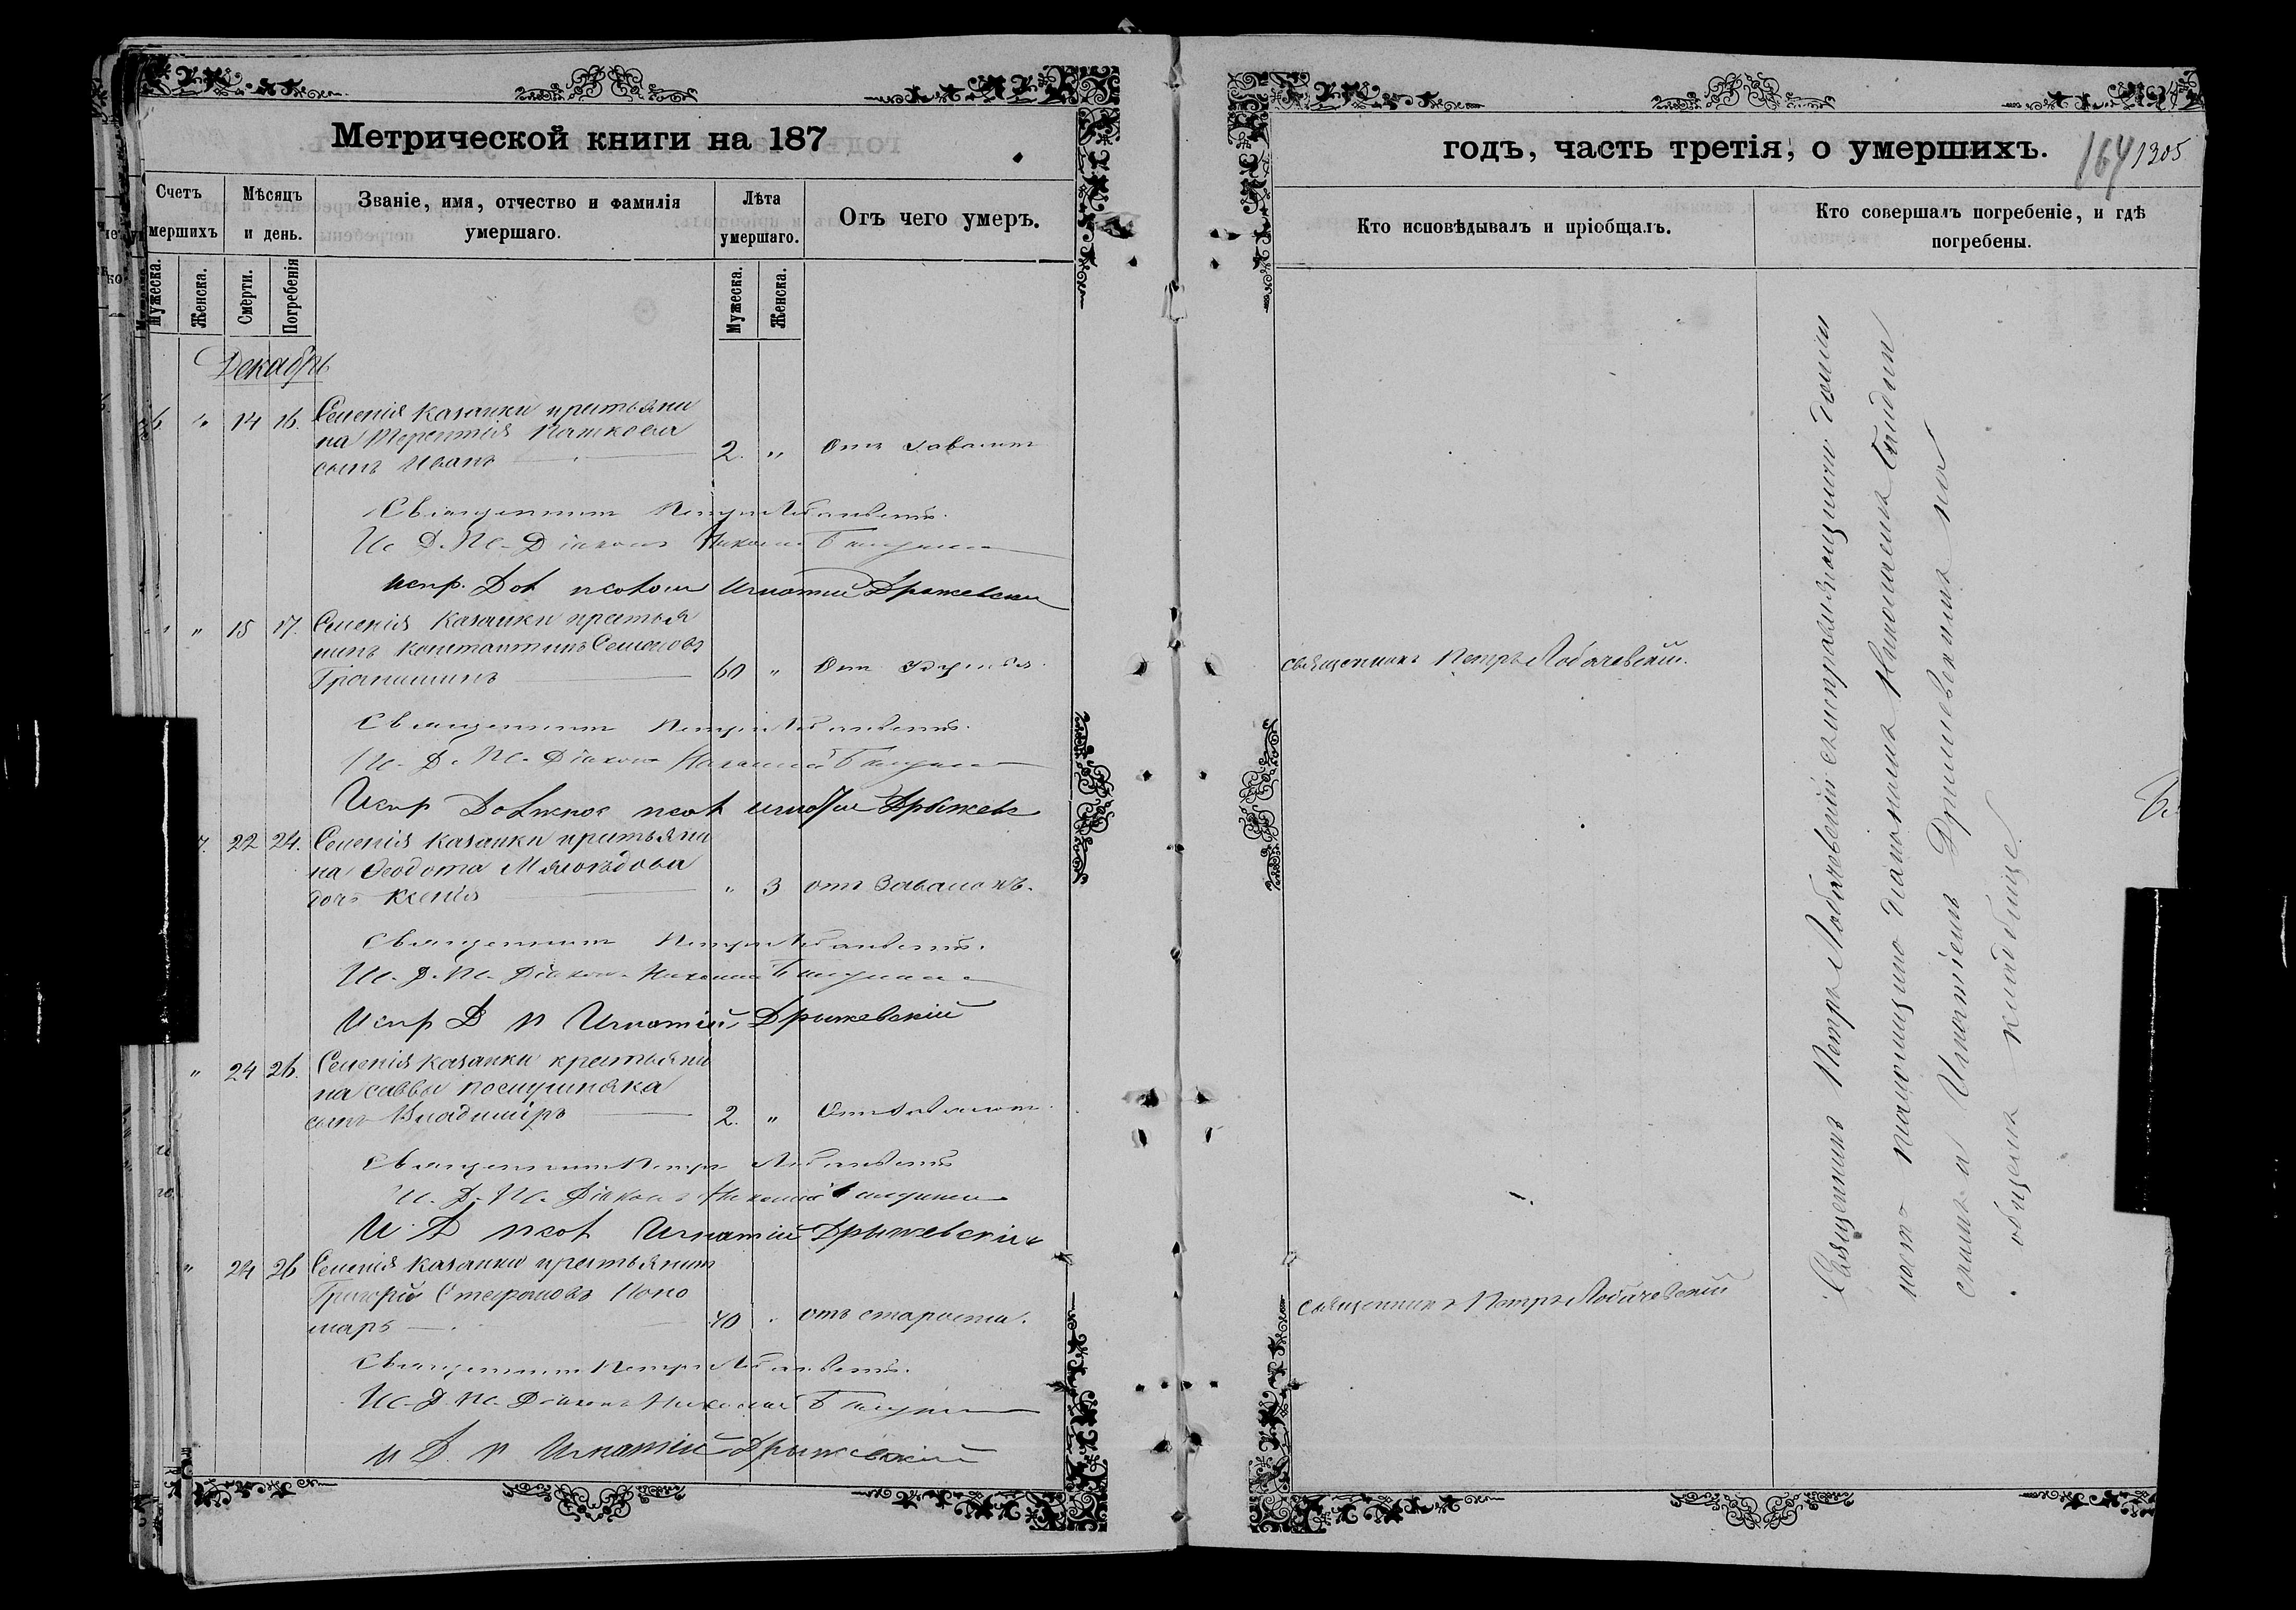 Метрической книги на 187
Счетъ
мершихъ
Мѣсяцъ
и день.
Званіе, имя, отчество и фамилія
умершаго.
Лѣта
умершаго.
Отъ чего умеръ.
Мужеска.
Женска.
Смерти.
Погребенія
Мужеска.
Женска.
Декабрь
6 " 14 16. Селенія Казанки крестьяни
на Терентія
сынъ Иванъ 2. " Отъ
Священникъ Петръ Лобачевскій.
И. Д. Пс. Діаконъ Николай
Испр. Дол псалом Игнатій Дрыжевски
" 15 17. Селенія Казанки крестья
нинъ Константинъ Семеновъ
60 " Отъ
Священникъ Петръ Лобачевскій.
И. Д. Пс. Діаконъ Николай
Испр Должнос псал Игнатій Дрыжев
7. 22 24. Селенія Казанки крестьяни
на Ѳеодота
дочь Ксенія " 3 отъ
Священникъ Петръ Лобачевскій.
И. Д. Пс. Діаконъ Николай
Испр Д п Игнатій Дрыжевскій
" 24 26. Селенія Казанки крестьяни
на Саввы
сынъ Владиміръ 2. "
Священникъ Петръ Лобачевскій
И. Д. Пс. Діаконъ Николай
И Д псал Игнатій Дрыжевскій
" 24 26 Селенія Казанки крестьянинъ
Григорій Стефановъ Поно
марь 40 отъ
Священникъ Петръ Лобачевскій.
И. Д. Пс. Діаконъ Николай
И Д. п Игнатій Дрыжевскій
годъ, часть третія, о умершихъ.
164 1305
Кто исповѣдывалъ и пріобщалъ.
Кто совершалъ погребеніе, и гдѣ
погребены.
Священникъ Петръ Лобачевскій.
Священникъ Петръ Лобачевскій
Священникъ Петръ Лобачевскій съ исправляющими долж
ность псаломщика діакономъ Николаемъ
и Игнатіемъ Дрыжевскимъ на
общемъ кладбищѣ.